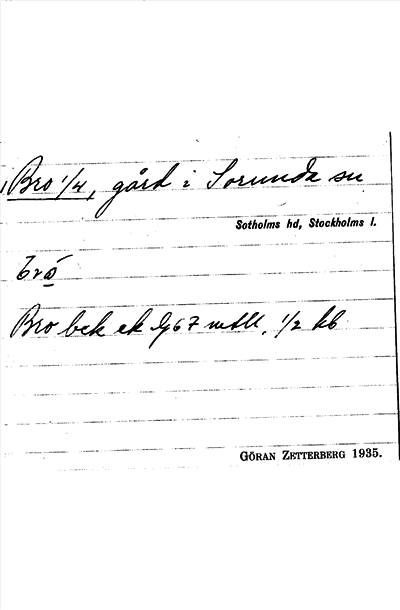 Bro 1/4, gård i Sorunda sn
Sotholms hd, Stockholms l.
brō
Bro bek ek G 67 mtll, 1/2 kb
GÖRAN ZETTERBERG 1935.